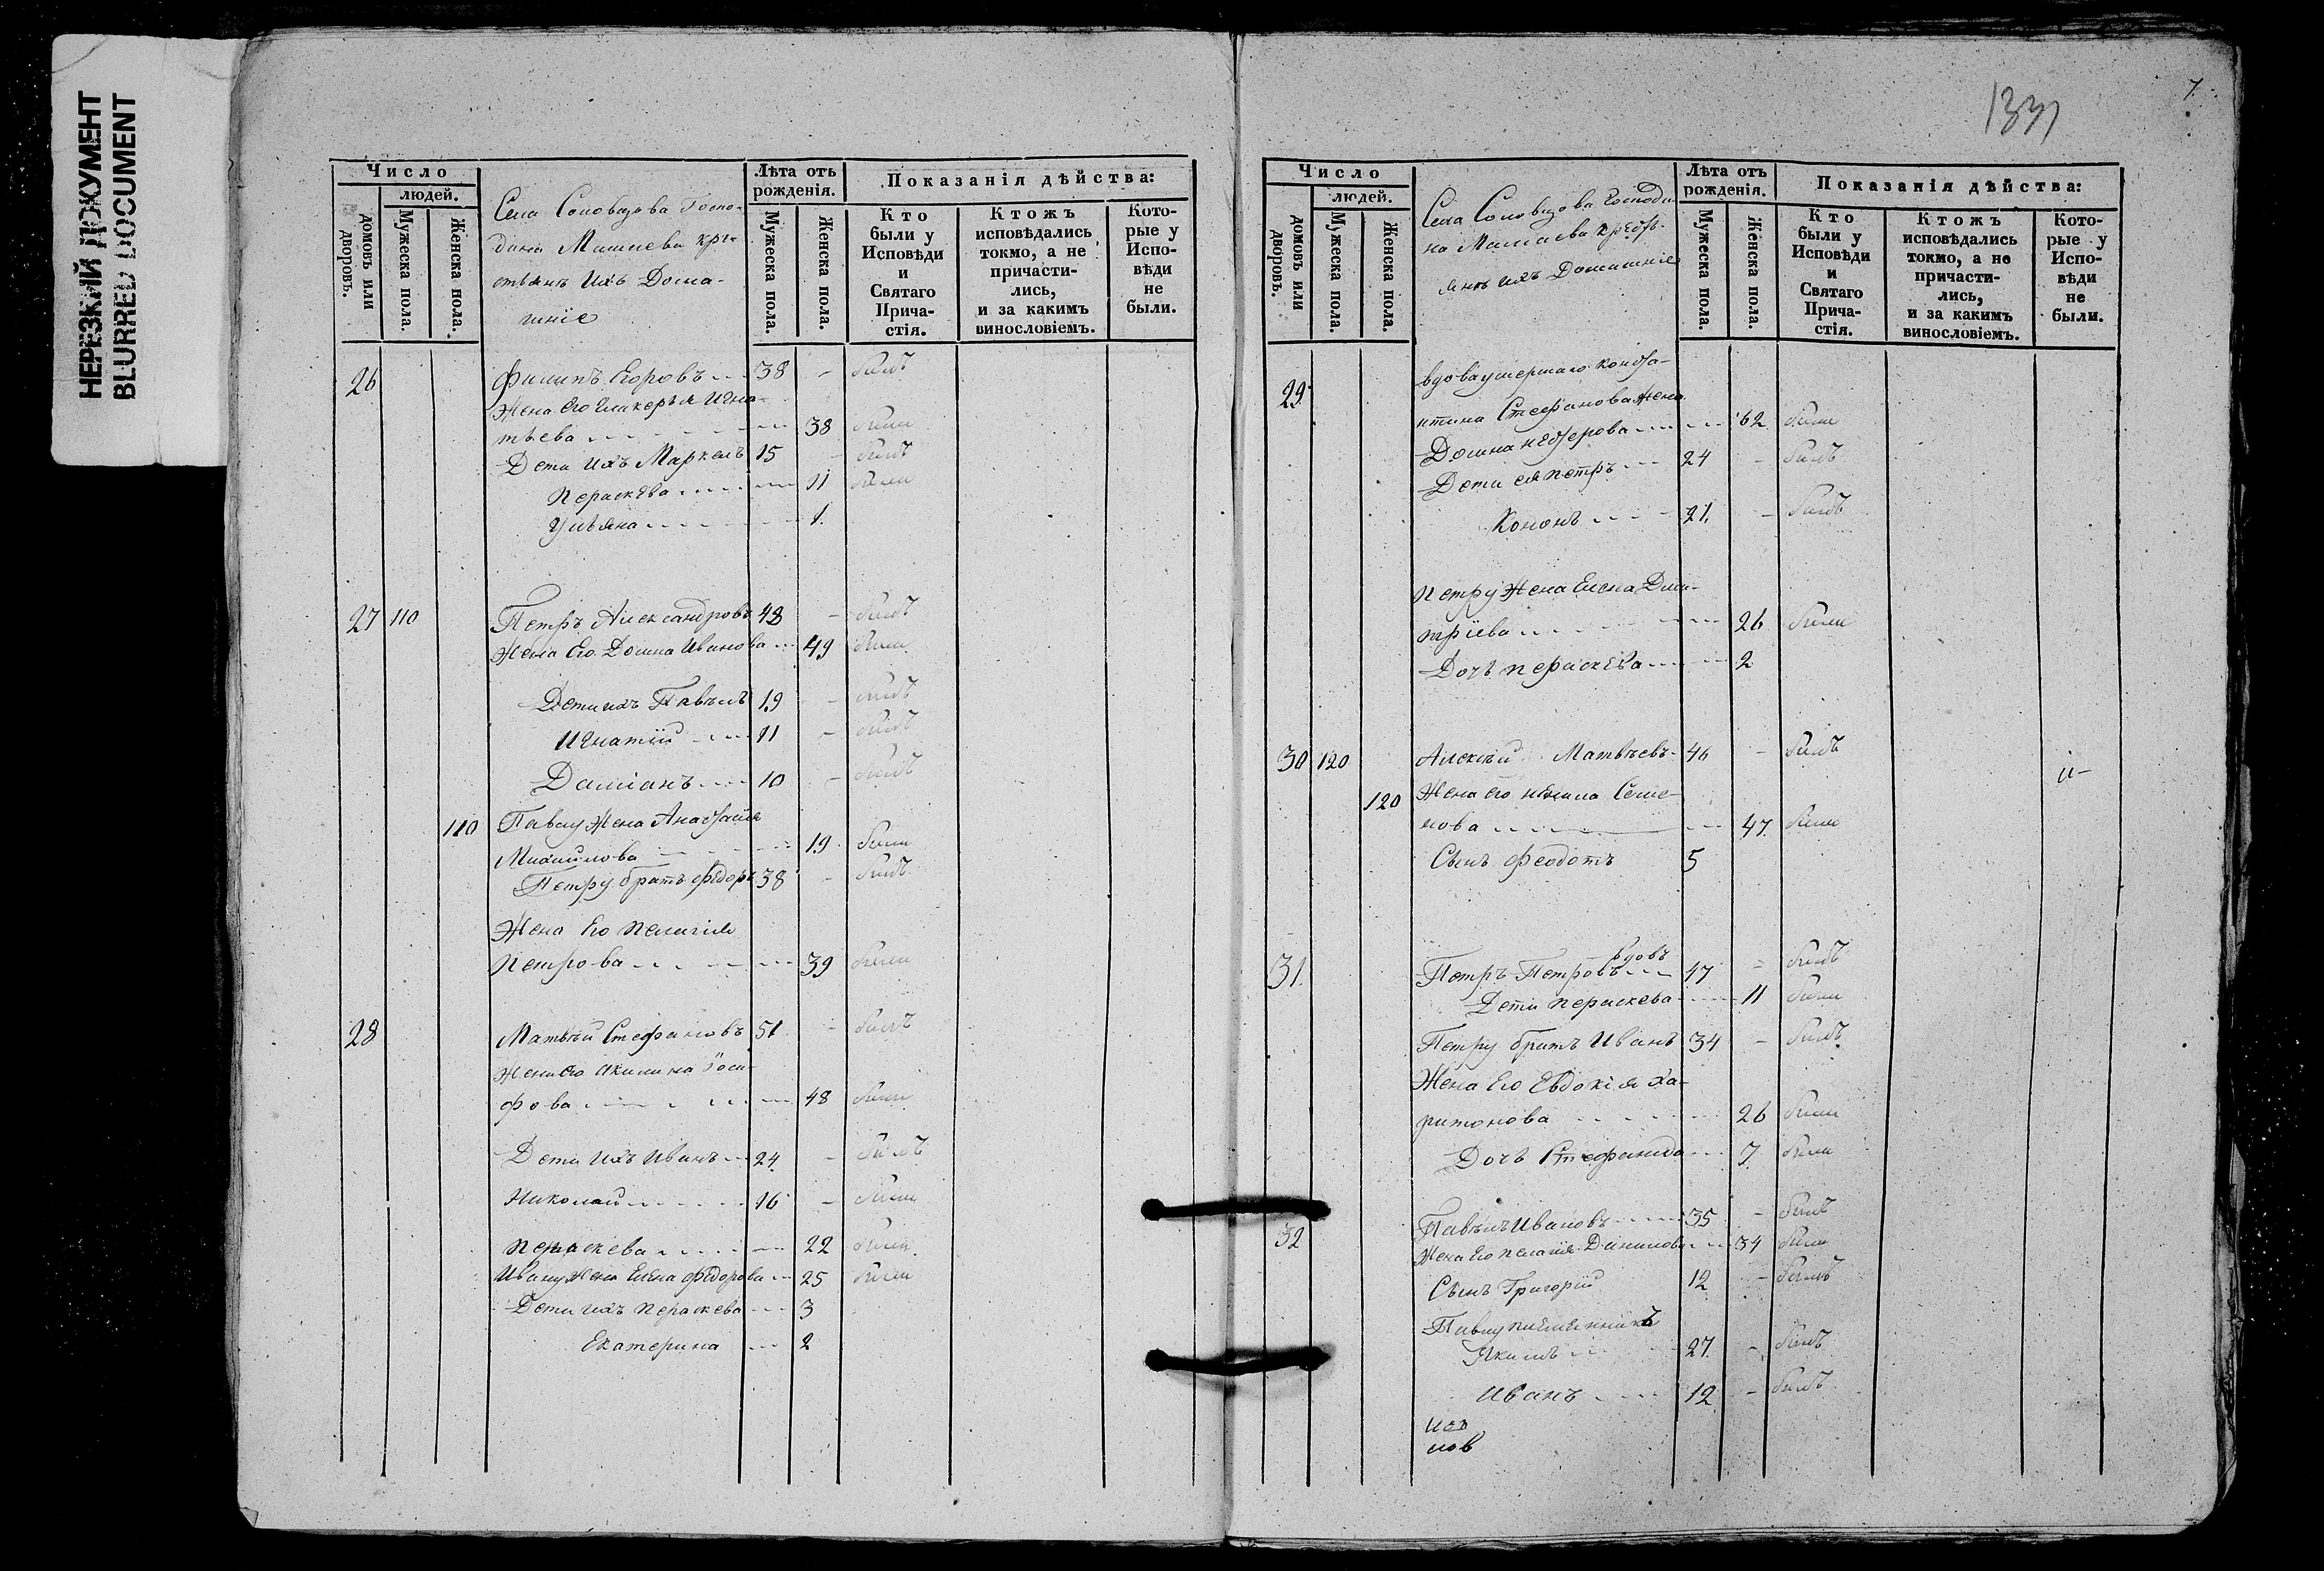 НЕРЕЗКИЙ ДОКУМЕНТ
BLURRED DOCUMENT
Число
людей.
домовъ или дворовъ.
Мужеска пола.
Женска пола.
Села Соловцова Госпо-
дина Машаева кре-
стьянъ Ихъ Дома-
шніе
Лѣта отъ рожденія.
Мужеска пола.
Женска пола.
Показанія дѣйства:
Кто были у Исповѣди и Святаго Прича-стія.
Ктожъ исповѣдались токмо, а не причасти-лись, и за какимъ винословіемъ.
Кото-рые у Испо-вѣди не были.
26 Филипъ Егоровъ 38 - былъ
Жена его Гликерья Игна-
тьева 38 была
Дети ихъ Маркелъ 15 - былъ
Пераскева 11 была
Ульяна 1.
27 110 Петръ Александровъ 48 - былъ
Жена Его Домна Иванова 49 была
Дети ихъ Павелъ 19 - былъ
Игнатій 11 - былъ
Даміанъ 10 - былъ
110 Павлу Жена Анастасія
Михайлова 19 была
Петру братъ Федоръ 38 - былъ
Жена Его Пелагия
Петрова 39 была
28 Матвѣй Стефановъ 51 - былъ
Жена его Акилина
фова 48 была
Дети Ихъ Иванъ 24 - былъ
Николай 16 - былъ
Пераскева 22 была
Ивану Жена Елена Федорова 25 была
Дети ихъ Пераскева 3
Екатерина 2
1331
7.
Число
людей.
домовъ или дворовъ.
Мужеска пола.
Женска пола.
Села Соловцова Господи-
на Машаева крестья-
янъ ихъ Домашніе
Лѣта отъ рожденія.
Мужеска пола.
Женска пола.
Показанія дѣйства:
Кто были у Исповѣди и Святаго Прича-стія.
Ктожъ исповѣдались токмо, а не причасти-лись, и за какимъ винословіемъ.
Кото-рые у Испо-вѣди не были.
29 вдова умершаго Конста-
нтина Стефанова Жена
Домна Несторова 62 была
Дети ея Петръ 24 - былъ
Кононъ 21. - былъ
Петру Жена Елена Дми-
тріева 26 была
Дочь Пераскева 2
30 120 Алексѣй Матвѣевъ 46 - былъ
120 Жена его Семе-
нова 47 была
Сынъ Феодотъ 5
вдовъ
31. Петръ Петровъ 47 - былъ
Дети Пераскева 11 была
Петру братъ Иванъ 34 - былъ
Жена Его Евдокія Ха-
ритонова 26 была
Дочь Стефанида 7 была
32 Павелъ Ивановъ 35 - былъ
Жена Его Пелагия Данилова 34 была
Сынъ Григорій 12 - былъ
Павлу племянникъ
Якимъ 27. - былъ
Иванъ 12 - былъ
нов